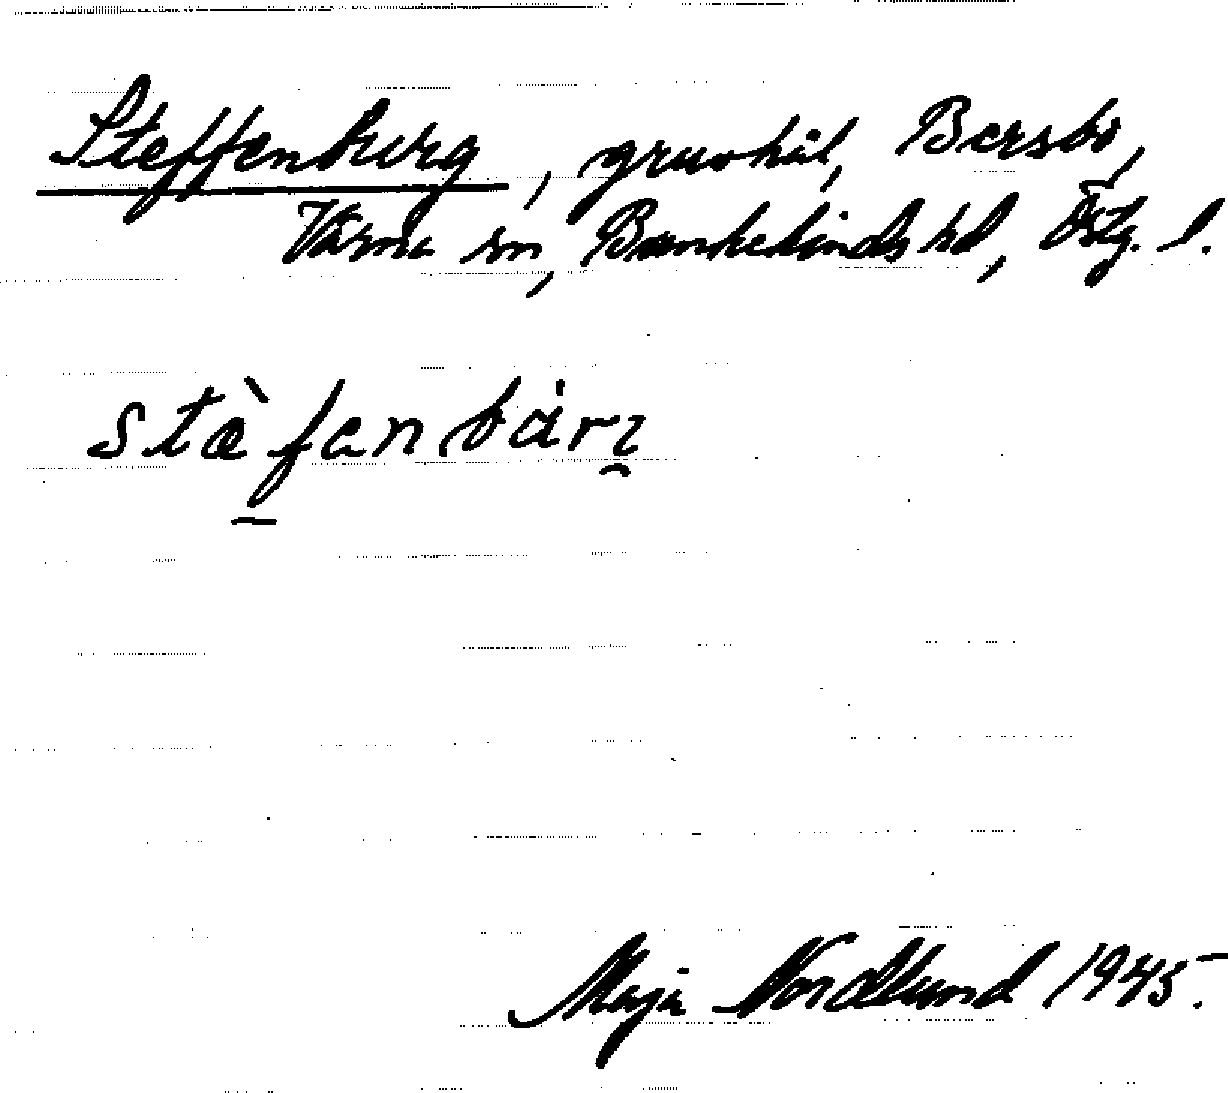 Steffenburg, gruvhål, Bersbo,
Värna sn, Bankekinds hd, Östg. l.
stæ̀fanbárȷ̑
Maja Nordlund 1945.